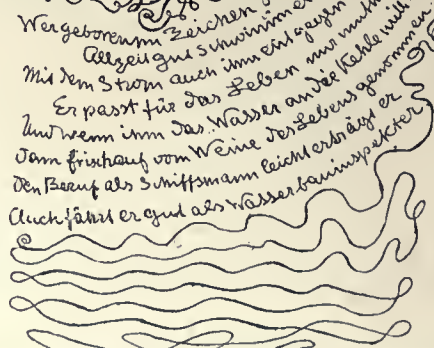 Wer geboren im Zeichen
Allzeit gut schwimmen
Mit dem Strom auch ihm einst gegen
Er passt für das Leben nur
Und wenn ihm das Wasser an die Kehle will
Dann frischauf vom Weine des Lebens genommen.
Den Beruf als Schiffsmann leicht erträgt er
Auch fährt er gut als Wasserbauinspektor